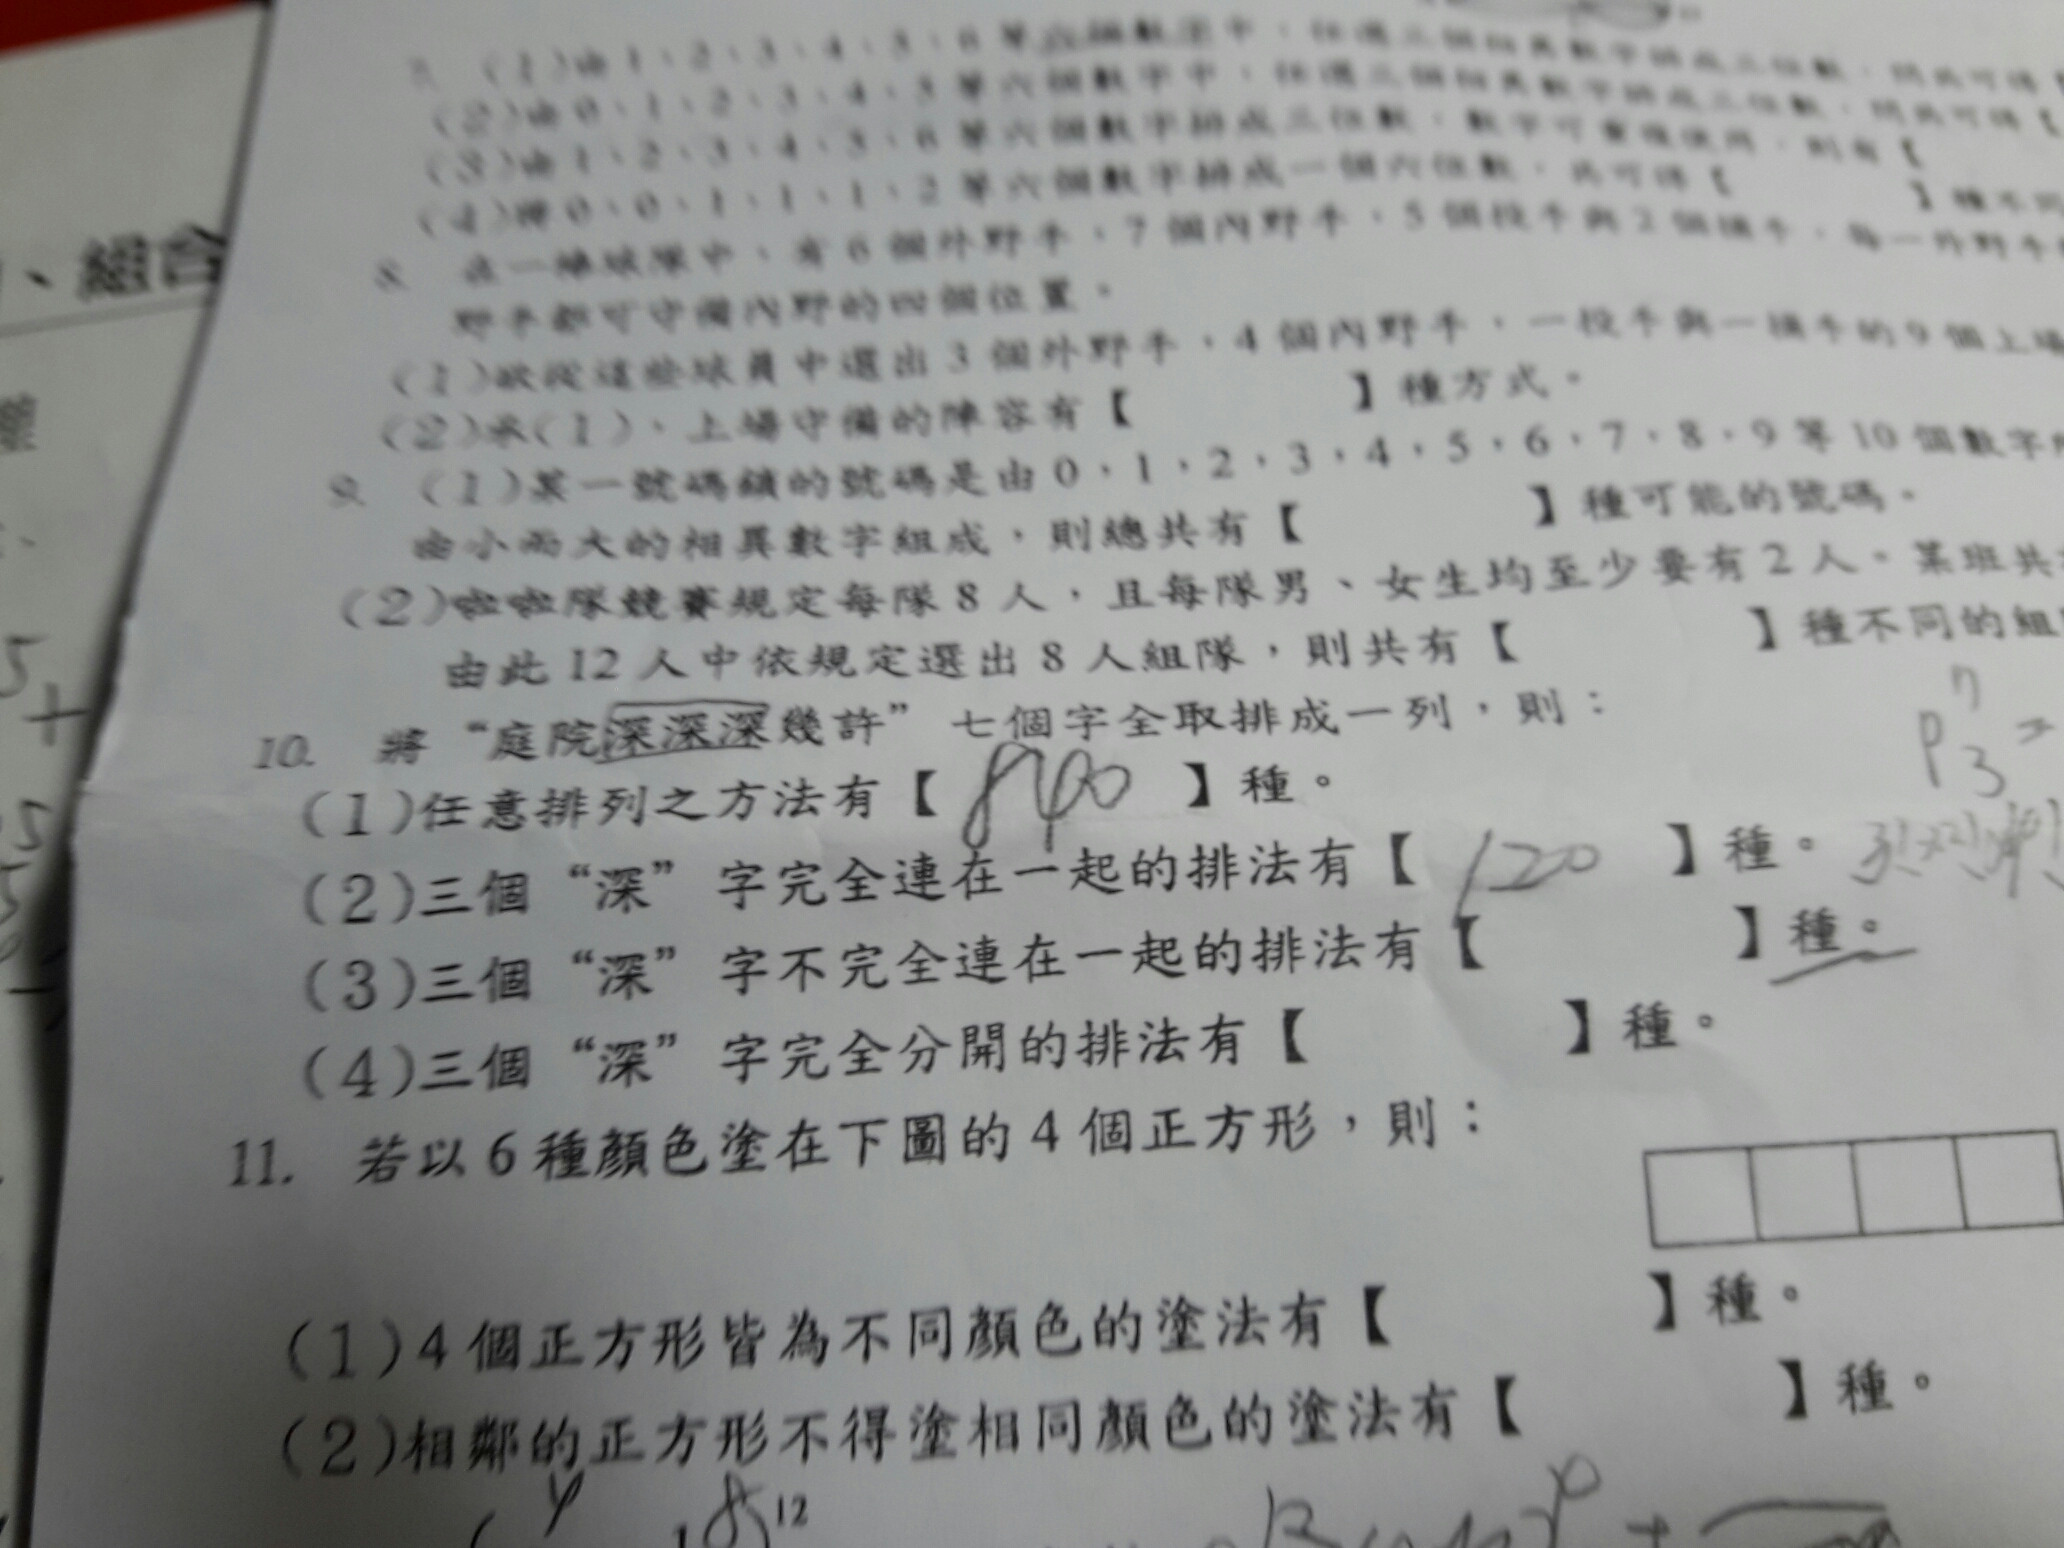 、組合
7. (1)由1、2、3、4、5、6等六個數字中，任選三個相異數字排成三位數，問共可得
(2)由0、1、2、3、4、5等六個數字中，任選三個相異數字排成三位數，問共可得【
(3)由1、2、3、4、5、6等六個數字排成三位數，數字可重複使用，則有【
(4)將0、0、1、1、1、2等六個數字排成一個六位數，共可得【 】種不同
8. 在一棒球隊中，有6個外野手，7個內野手，5個投手與2個捕手，每一外野手
野手都可守備內野的四個位置。
(1)欲從這些球員中選出3個外野手，4個內野手，一投手與一捕手的9個上場
(2)承(1)，上場守備的陣容有【 】種方式。
9. (1)某一號碼鎖的號碼是由0，1，2，3，4，5，6，7，8，9等10個數字
由小而大的相異數字組成，則總共有【 】種可能的號碼。
(2)啦啦隊競賽規定每隊8人，且每隊男、女生均至少要有2人。某班共
由此12人中依規定選出8人組隊，則共有【 】種不同的組
10. 將“庭院深深深幾許”七個字全取排成一列，則：
(1)任意排列之方法有【 840 】種。
(2)三個“深”字完全連在一起的排法有【 120 】種。
(3)三個“深”字不完全連在一起的排法有【 】種。
(4)三個“深”字完全分開的排法有【 】種。
11. 若以6種顏色塗在下圖的4個正方形，則：
(1)4個正方形皆為不同顏色的塗法有【 】種。
(2)相鄰的正方形不得塗相同顏色的塗法有【 】種。